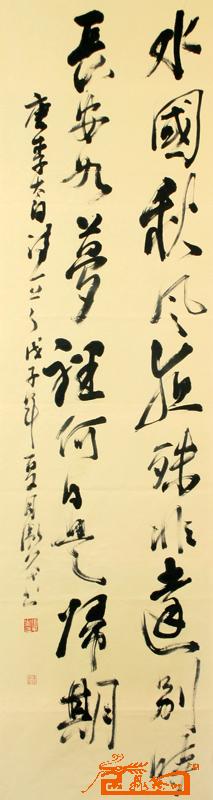 水國秋風夜殊非遠別時
長安如夢裡何日是歸期
唐李太白詩一首戊子年夏月書